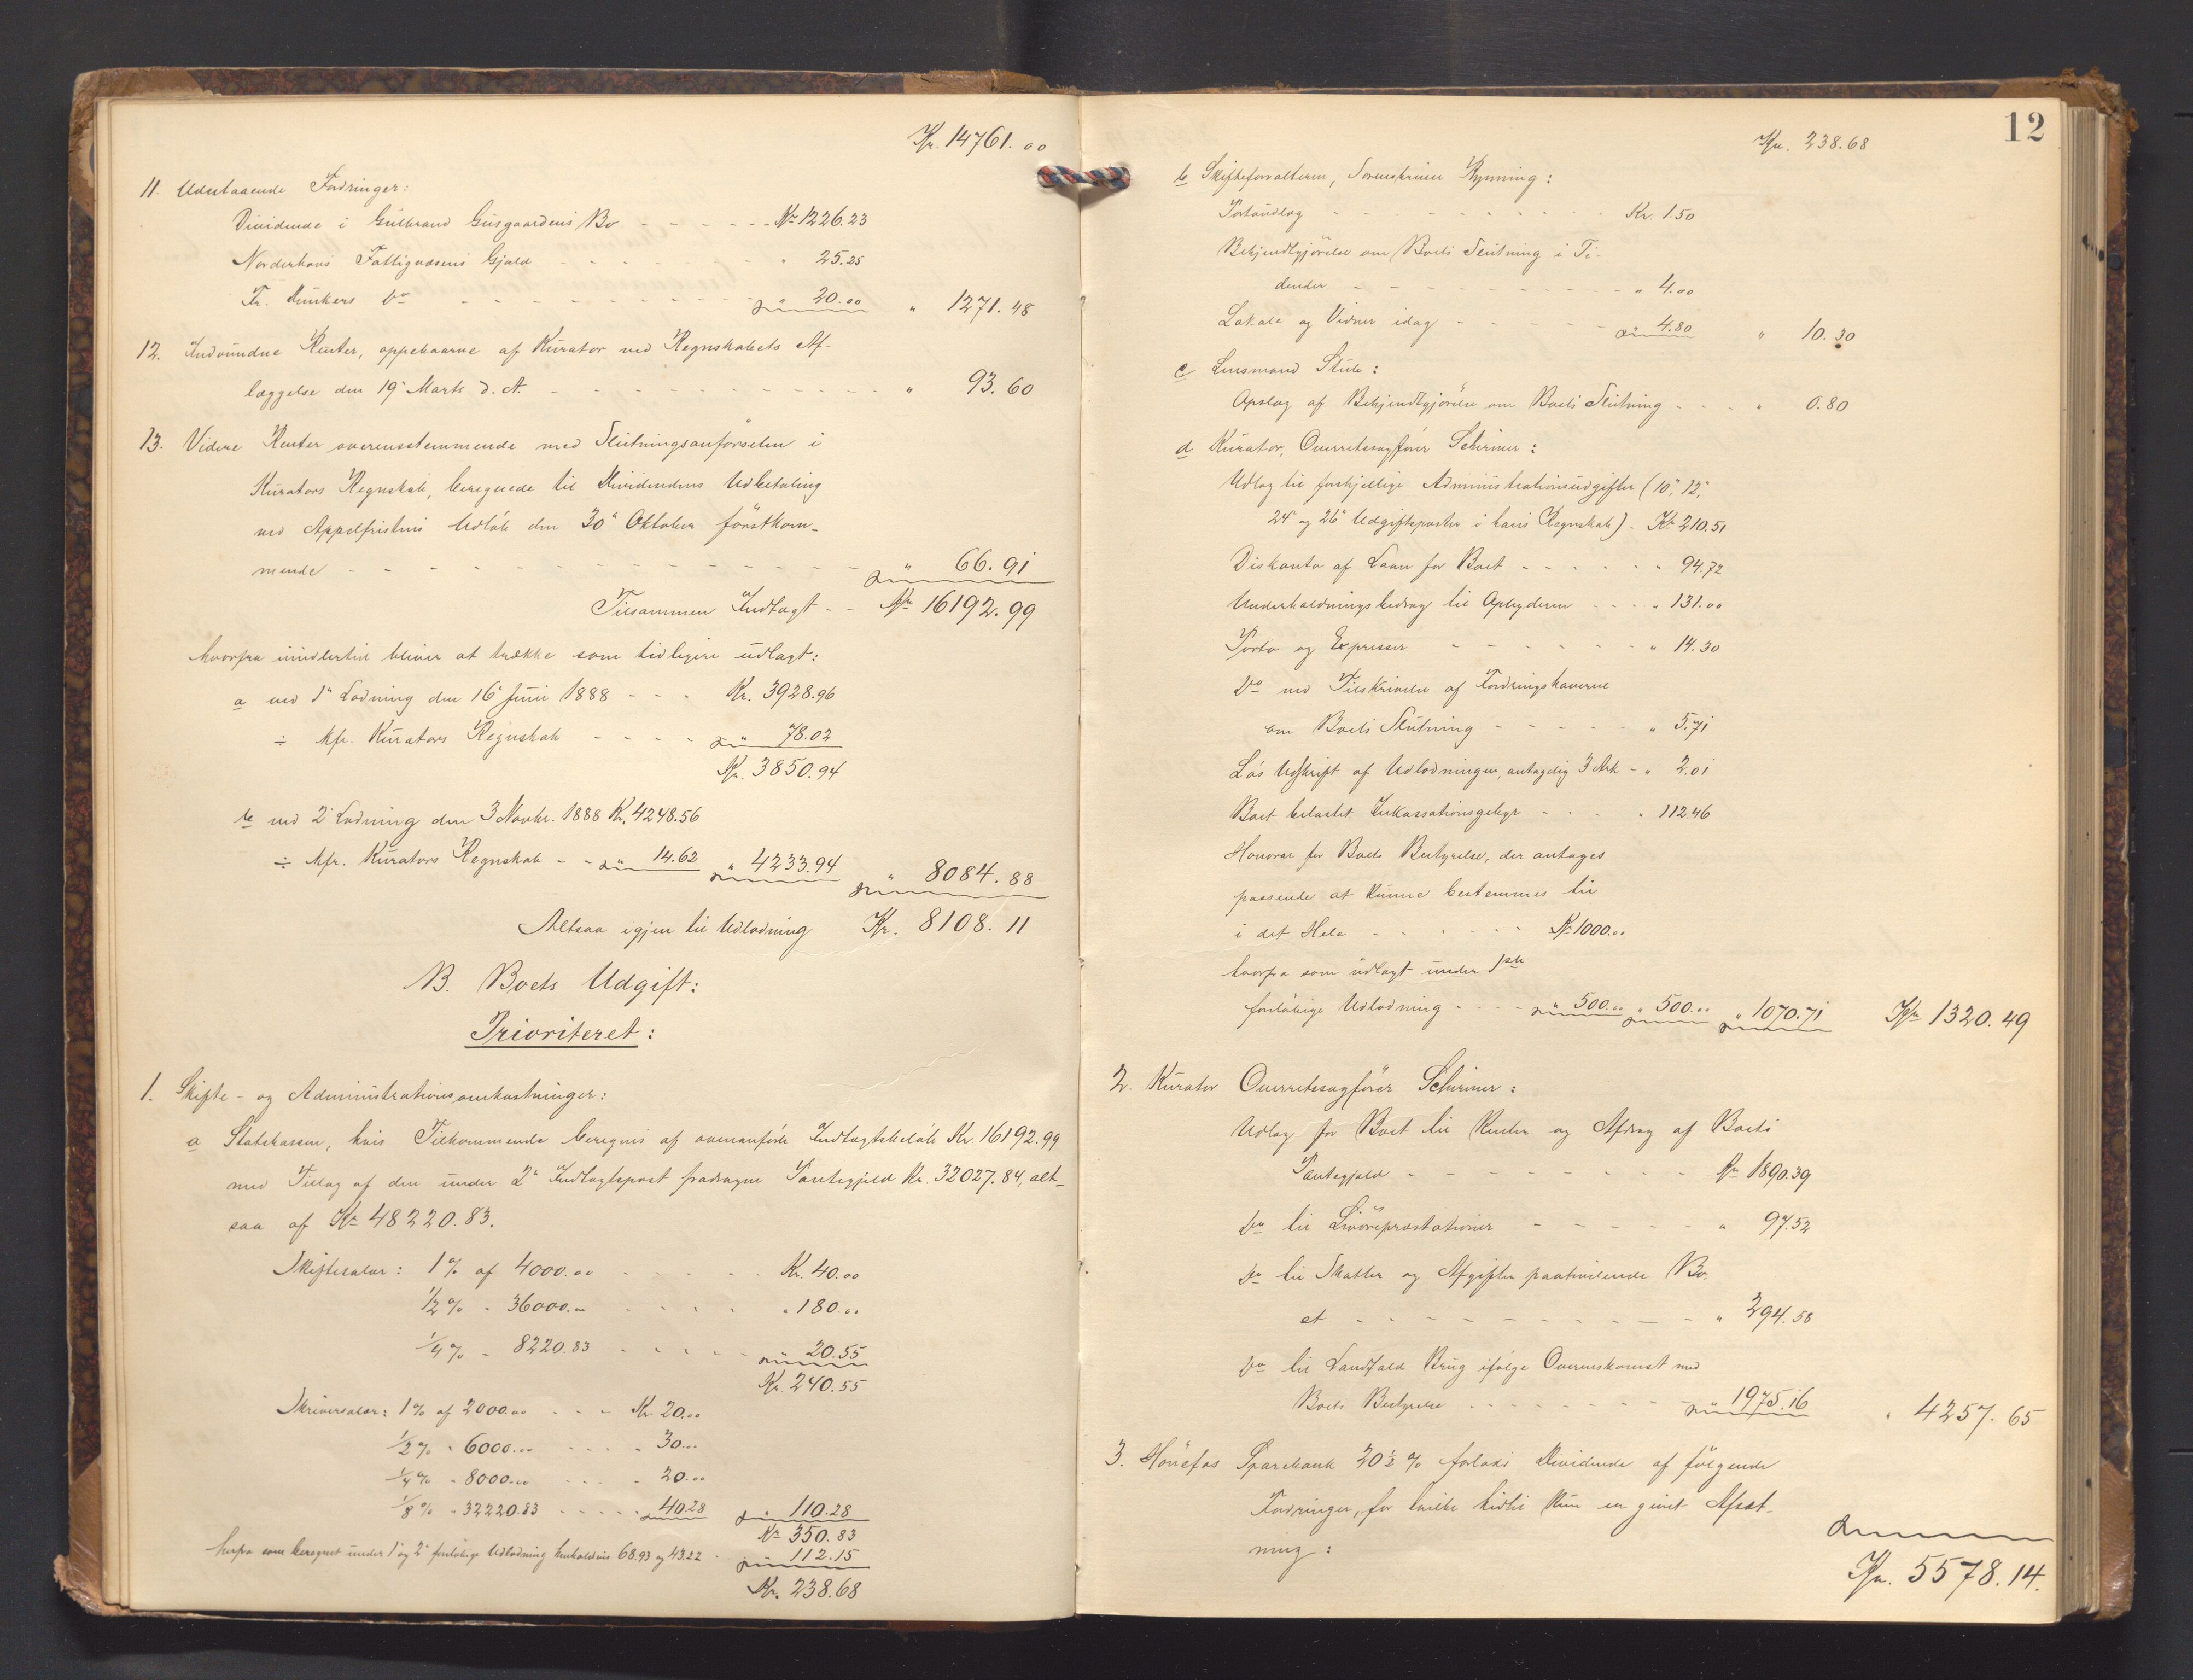 Kr. 14761.00
11. Udestaaende Fordringer:
Dividende i Gulbrand Gusgaardens Bo - - - - - Kr 1226.23
Norderhovs Fattigvæsens Gjæld - - - - - - - " 25.25
Fr. Unkers do - - - - - - - - " 20.00 " 1271.48
12. Indvundne Renter, oppebaarne af Kurator ved Regnskabets Af-
læggelse den 19de Marts d. A. - - - - - - - - - " 93.60
13. Videre Renter overensstemmende med Slutningsanførselen i
Kurators Regnskab, beregnede til Dividendens Udbetaling
ved Appelfristens Udløb den 30te Oktober førstkom-
mende - - - - - - - - - - - - - " 66.91
Tilsammen Indtægt - - Kr 16192.99
hvorfra imidlertid bliver at trække som tidligere udlagt:
a ved 1ste Lodning den 16de Juni 1888 - - - Kr. 3928.96
÷ kfr. Kurators Regnskab - - - - " 78.02
Kr. 3850.94
b ved 2den Lodning den 3 Novbr. 1888 Kr. 4248.56
÷ kfr. Kurators Regnskab - - " 14.62 " 4233.94 " 8084.88
Altsaa igjen til Udlodning Kr. 8108.11
B. Boets Udgift:
Prioriteret:
1. Skifte- og Administrationsomkostninger:
a Statskassen, hvis Tilkommende beregnes af ovenanførte Indtægtsbeløb Kr. 16192.99
med Tillæg af den under 2den Indtægtspost fradragne Pantegjæld Kr. 32027.84, alt-
saa af Kr 48220.83.
Skiftesalær: 1 % af 4000.00 - - - - - Kr. 40.00
1/2 % " 36000.- - - - - " 180.00
1/4 % " 8220.83 - - - - " 20.55
Kr. 240.55
Skriversalær: 1 % af 2000.00 - - - Kr. 20.00
1/2 % " 6000.00 - - - - " 30.00
1/4 % " 8000.00 - - - - " 20.00
1/8 % " 32220.83 - - - - " 40.28 " 110.28
Kr 350.83
herfra som beregnet under 1ste og 2den foreløbige Udlodning henholdsvis 68.93 og 43.22 - " 112.15
Kr. 238.68
12
Kr. 238.68
b Skifteforvalteren, Sorenskriver Rynning:
Portoudlæg - - - - - - - - - Kr. 1.50
Bekjendtgjørelse om Boets Slutning i Ti-
dender - - - - - - - - - - " 4.00
Lokale og Vidner idag - - - - - " 4.80 " 10.30
c Lensmand Stub:
Opslag af Bekjendtgjørelse om Boets Slutning - - - " 0.80
d Kurator, Overretssagfører Schriwer:
Udlæg til forskjellige Administrationsudgifter (10de, 12te,
24de og 26de Udgiftsposter i hans Regnskab) - Kr. 210.51
Diskonto af Laan for Boet - - - - - - " 94.72
Underholdningsbidrag til Opbyderen - - - - " 131.00
Porto og Expresser - - - - - - - " 14.30
do ved Tilskrivelse af Fordringshaverne
om Boets Slutning - - - - - " 5.71
Løs Udskrift af Udlodningen, antagelig 3 Ark - " 2.01
Boet belastet Inkassationsgebyr - - - - " 112.46
Honorar for Boets Bestyrelse, der antages
passende at kunne bestemmes til
i det Hele - - - - - - Kr 1000.00
hvorfra som udlagt under 1ste
foreløbige Udlodning - - - - " 500.00 " 500.00 " 1070.71 Kr 1320.49
2. Kurator Overretssagfører Schriwer:
Udlæg for Boet til Renter og Afdrag af Boets
Pantegjæld - - - - - - - - - Kr 1890.39
do til Livørepræstationer - - - - - - " 97.52
do til Skatter og Afgifter paahvilende Bo-
et - - - - - - - - - - - " 294.58
do til Landfald Brug ifølge Overenskomst med
Boets Bestyrelse - - - - - - - - " 1975.16 " 4257.65
3. Hønefos Sparebank 20½ % forlods Dividende af følgende
Fordringer, for hvilke hidtil kun er givet Afsæt-
ning:
Kr. 5578.14.